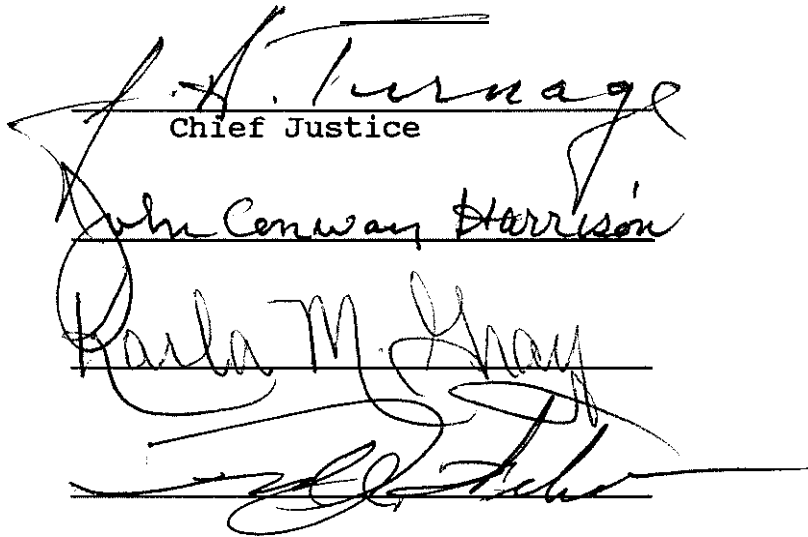 J. A. Turnage
Chief Justice
John Conway Harrison
Karla M. Gray